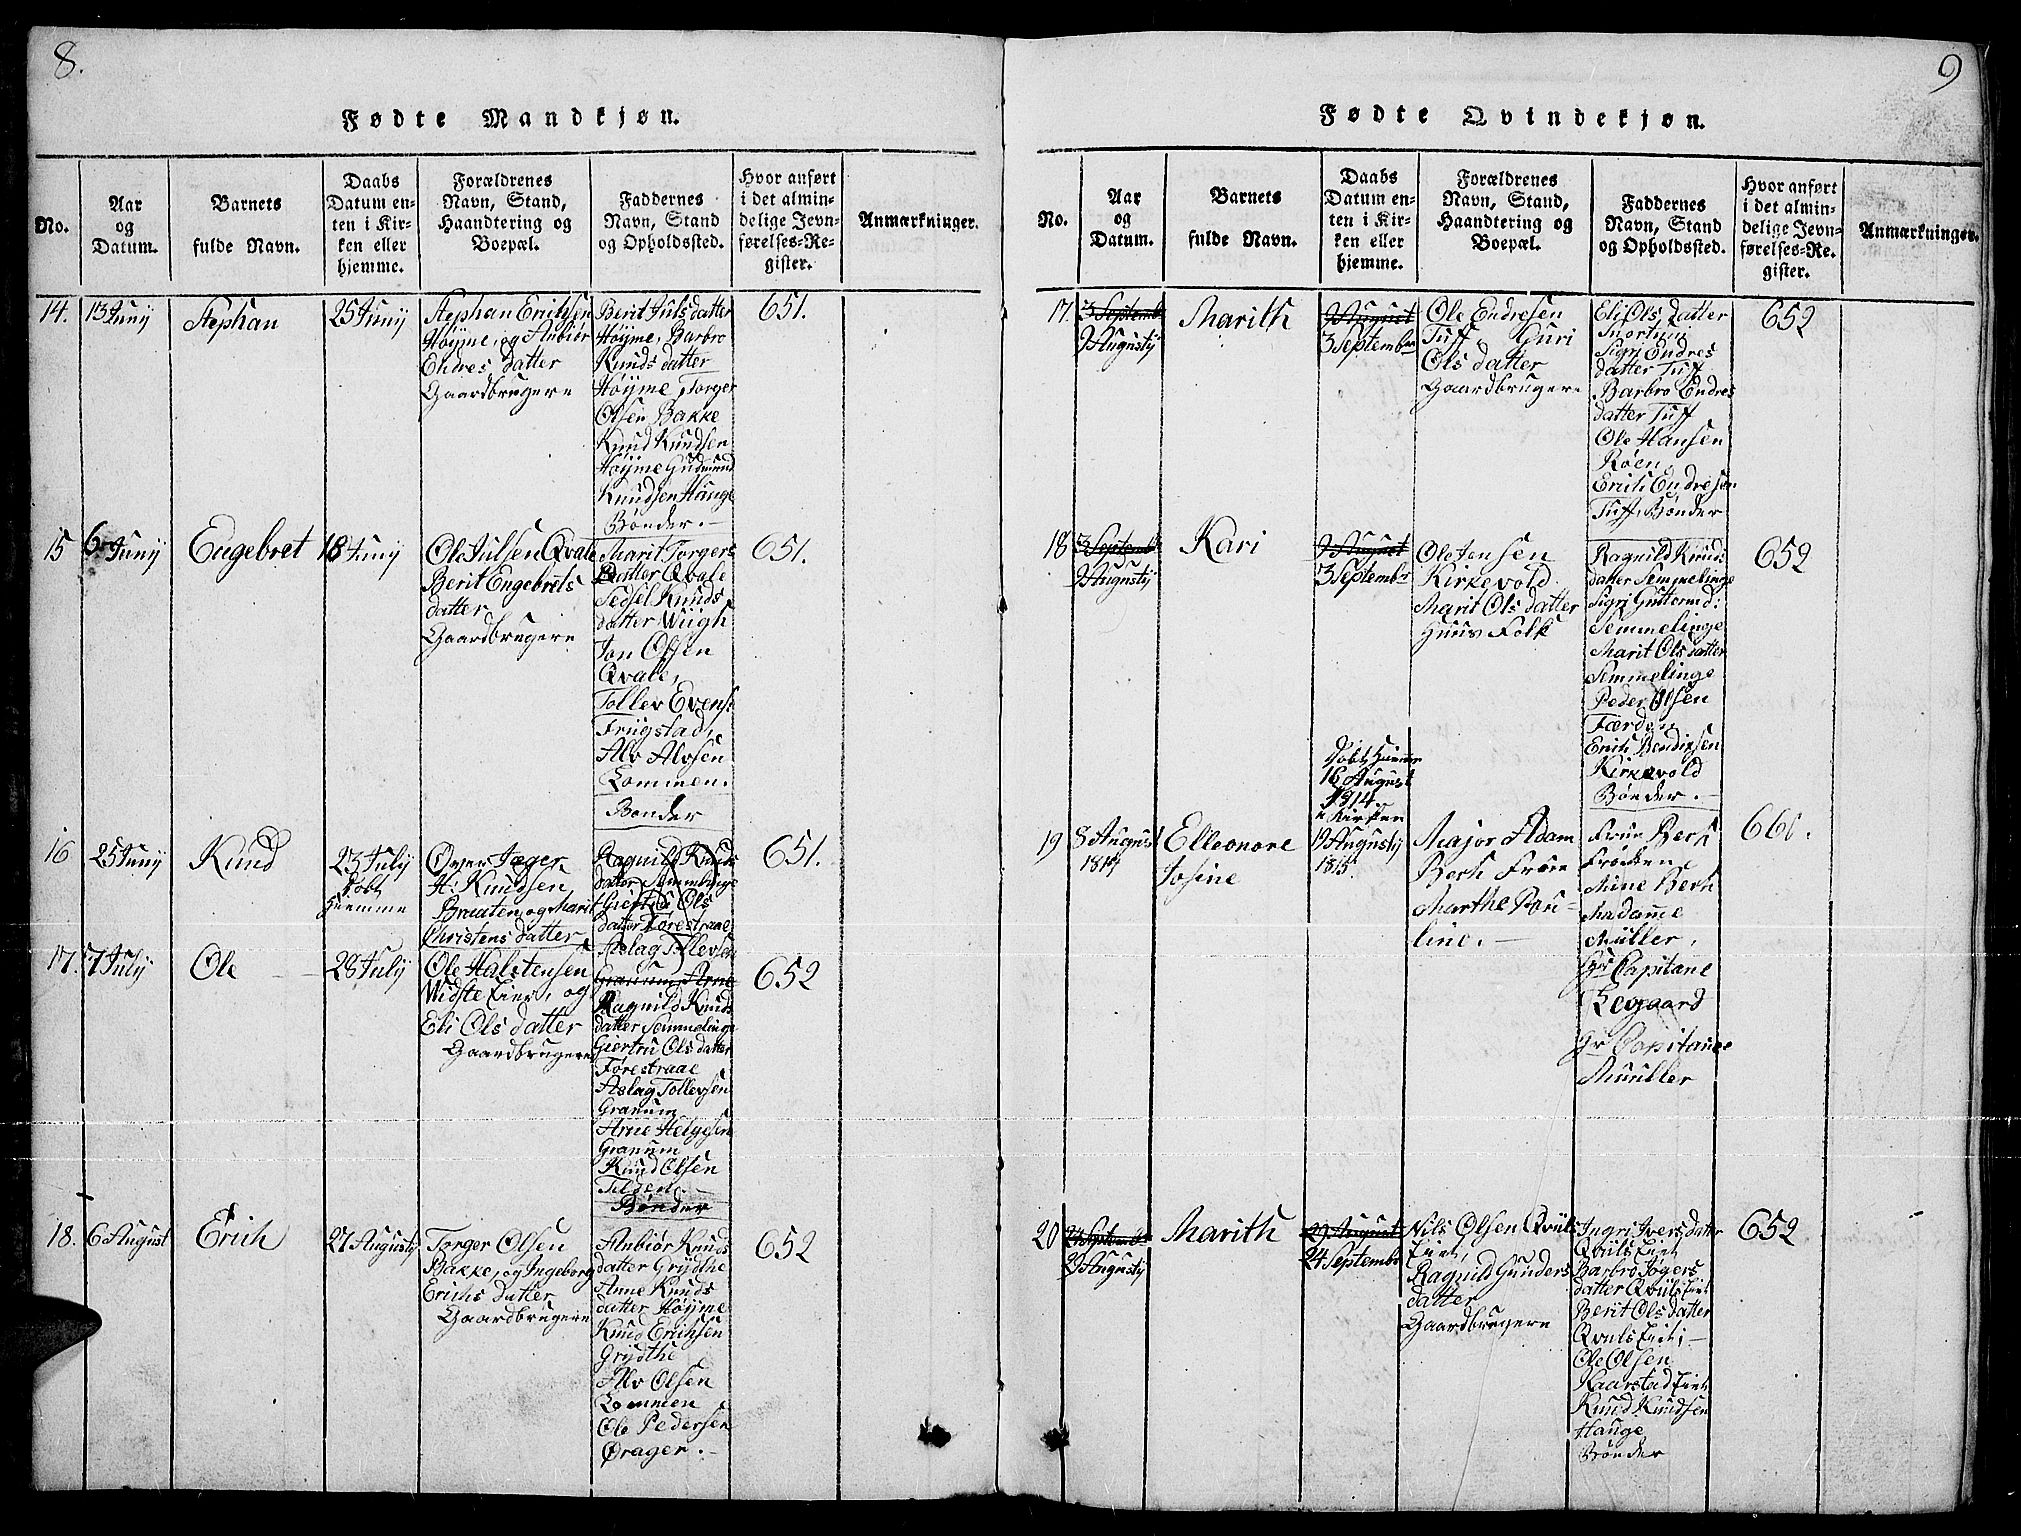 8.
Fødte Mandkjøn.
No.
Aar
og
Datum.
Barnets
fulde Navn.
Daabs
Datum en-
ten i Kir-
ken eller
hjemme.
Forældrenes
Navn, Stand,
Haandtering og
Boepæl.
Faddernes
Navn, Stand
og Opholdssted.
Hvor anført
i det almin-
delige Jevn-
førelses-Re-
gister.
Anmærkninger.
14.
13 Juny
Stephan
25 Juny
Stephan Erichsen
Høyme, og Anbiør
Endres datter
Gaardbrugere
Berit Juls datter
Høyme, Barbro
Knuds datter
Høyme, Torger
Olsen Bakke
Knud Knudsen
Høyme Gudmund
Knudsen Hauge
Bønder.-
651.
15
6 Juny
Engebret
18 Juny
Ole Julsen Qvale
Berit Engebrets
datter
Gaardbrugere
Marit Torgers
Datter Qvale
Sedsel Knuds
datter Wiigh
Jon Olsen
Qvale,
Tollev Evens.
Frugstad,
Alv Alvsen
Lommen.
Bønder
651.
16
25 Juny
Knud
23 July
Døbt
Hiemme
Over Jæger
H: Knudsen
Braaten, og Marit
Christens datter
Ragnild Knuds
datter Semmelinge
Giertru Ols
datter Førestraae
Aslag Tollevsen
Granum Arne
651.
17.
7 July
Ole
28 July
Ole Halstensen
Widste Eier, og
Eli Ols datter
Gaardbrugere
Ragnild Knuds
datter Semmelinge
Giertru Ols datter
Førestraae
Aslag Tollevsen
Granum
Arne Helgesen
Granum
Knud Olsen
Tilden
Bønder
652
18.
6 August
Erich
27 Augusty
Torger Olsen
Bakke, og Ingeborg
Erichs datter
Gaardbrugere
Anbiør Knuds
datter Grydthe
Anne Knuds
datter Høyme
Knud Erichsen
Grydthe
Alv Olsen
Lommen
Ole Pedersen
Ørager.-
652
9
Fødte Qvindekjøn.
No.
Aar
og
Datum.
Barnets
fulde Navn.
Daabs
Datum en-
ten i Kir-
ken eller
hjemme.
Forældrenes
Navn, Stand,
Haandtering og
Boepæl.
Faddernes
Navn, Stand
og Opholdssted.
Hvor anført
i det almin-
delige Jevn-
førelses-Re-
gister.
Anmærkninger.
17.
3 Septembr
9 Augusty
Marith
9 August
3 September
Ole Endresen
Tuff, Guri
Ols datter
Gaardbrugere
Eli Ols datter
Sigri Endres
datter Tuff
Barbro Endres
datter Tuff
Ole Hansen
Røen,
Erich Endresen
Tuff, Bønder
652
18
3 Septembr
9 Augusty
Kari
9 August
3 Septembr
Ole Jensen
Kirkevold
Marit Ols datter
Huus Folk
Ragnild Knuds
datter Semmelinge
Sigri Guttormd:
Semmelinge
Marit Ols datter
Semmelinge
Peder Olsen
Færden
Erich Bendixsen
Kirkevold
Bønder.-
652
19
8 August
Elleonore
Josine
Døbt Hiemme
16 August
1814
i Kirken
19 Augusty
1815.
Major Adam
Berh Frue
Marthe Pou-
line.-
Frue Berh
Frøcken
Anne Berh
Madame
Müller,
Hr Capitane
Zegaard
Hr Capitane
Muuller
660.
20
24 Septembr
29 Augusty
Marith
29 August
24 Septembr
Nils Olsen Qvils
Eiet,
Ragnild Gunders
datter
Gaardbrugere
Ingri Ivers datter
Qvils Eiet
Barbro Jøgers
datter Qvils Eiet
Berit Ols datter
Qvils Eiet;-
Ole Olsen
Kaarstad Eiet
Knud Knudsen
Hauge
Bønder
652